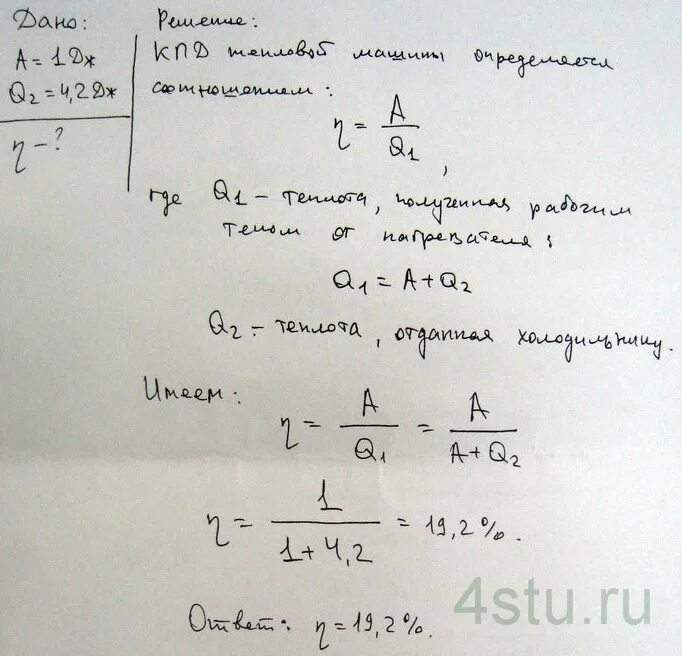 Дано:
A = 1 Дж
Q2 = 4,2 Дж
η - ?
Решение:
КПД тепловой машины определяется
соотношением:
η = A / Q1 ,
где Q1 - теплота, полученная рабочим
телом от нагревателя:
Q1 = A + Q2
Q2 - теплота, отданная холодильнику.
Имеем:
η = A / Q1 = A / A + Q2
η = 1 / 1 + 4,2 = 19,2 %.
Ответ: η = 19,2 %.
4stu.ru